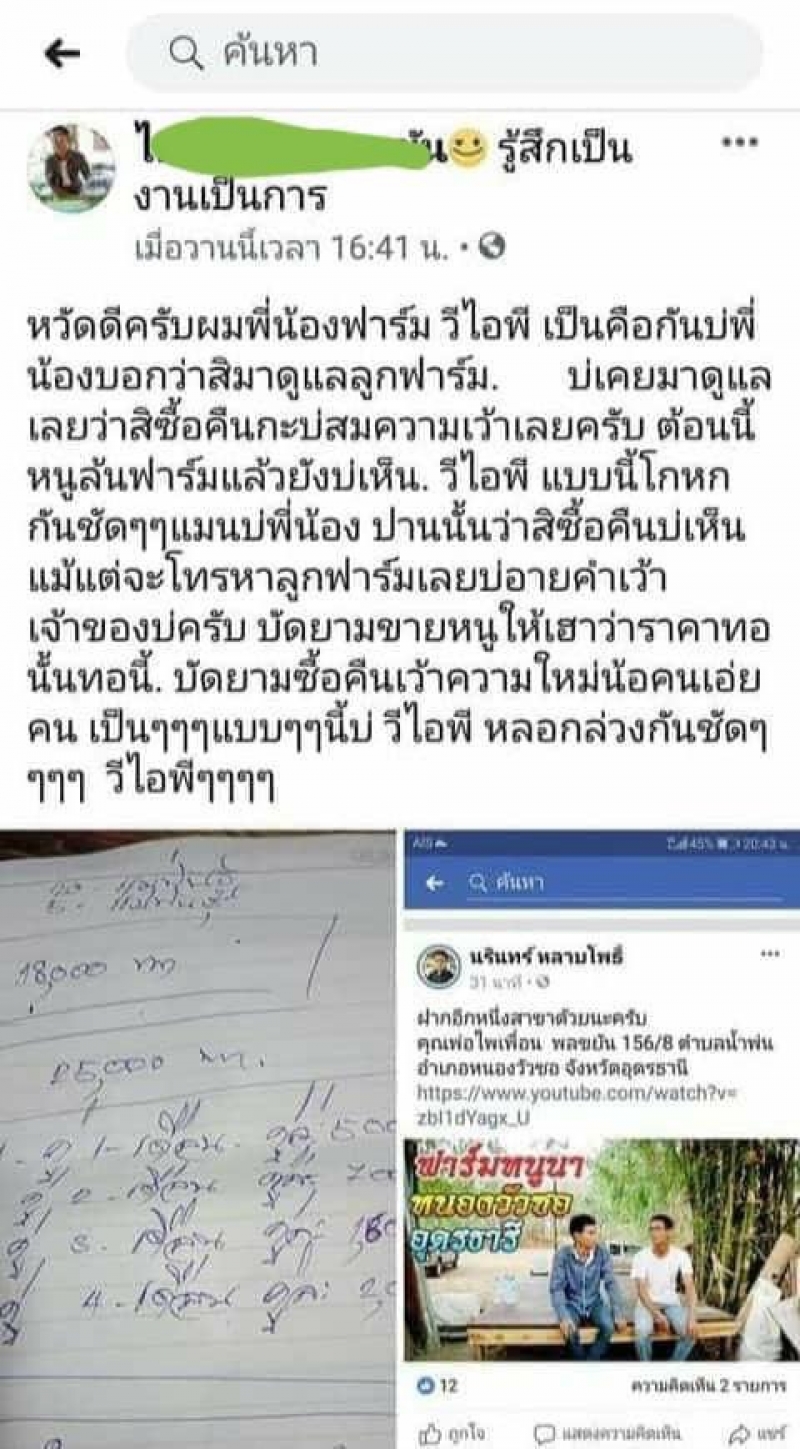 ค้นหา
รู้สึกเป็น
งานเป็นการ
เมื่อวานนี้เวลา 16:41 น. ·
หวัดดีครับผมพี่น้องฟาร์ม วีไอพี เป็นคือกันบ่พี่
น้องบอกว่าสิมาดูแลลูกฟาร์ม. บ่เคยมาดูแล
เลยว่าสิซื้อคืนกะบ่สมความเว้าเลยครับ ต้อนนี้
หนูลันฟาร์มแล้วยังบ่เห็น. วีไอพี แบบนี้โกหก
กันชัดๆๆแมนบ่พี่น้อง ปานนั้นว่าสิซื้อคืนบ่เห็น
แม้แต่จะโทรหาลูกฟาร์มเลยบ่อายคำเว้า
เจ้าของบ่ครับ บัดยามขายหนูให้เฮาว่าราคาทอ
นั้นทอนี้. บัดยามซื้อคืนเว้าความใหม่น้อคนเอ่ย
คน เป็นๆๆๆแบบๆๆนี้บ่ วีไอพี หลอกล่วงกันชัดๆ
ๆๆๆ วีไอพีๆๆๆๆ
18,000
25,000
1- เดือน คู่ละ 500
คู่ 2 - เดือน คู่ละ
คู่ 3 - เดือน คู่ละ
คู่ 4 - เดือน คู่ละ
AIS
45% 20:43 น.
ค้นหา
นรินทร์ หลาบโพธิ์
31 นาที ·
ฝากอีกหนึ่งสาขาด้วยนะครับ
คุณพ่อไพเพื่อน พลขยัน 156/8 ตำบลน้ำพ่น
อำเภอหนองวัวซอ จังหวัดอุดรธานี
https://www.youtube.com/watch?v=
zbl1dYagx_U
ฟาร์มหนูนา
หนองวัวซอ
อุดรธานี
12
ความคิดเห็น 2 รายการ
ถูกใจ
แสดงความคิดเห็น
แชร์